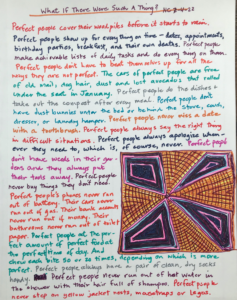 What If There Were Such A Thing?
Perfect people cover their woodpiles before it starts to rain.
Perfect people show up for everything on time - dates, appointments,
birthday parties, breakfast, and their own deaths. Perfect people
make achievable lists of daily tasks and do every thing on them.
Perfect people don't have to beat themselves up for all the
ways they are not perfect. The cars of perfect people are free
of old mail, dog hair, dust and lost avocados that rolled
under the seat in January. Perfect people do the dishes &
take out the compost after every meal. Perfect people don't
have dust bunnies under the bed or behind the stove, couch,
dresser, or laundry hamper. Perfect people never miss a date
with a toothbrush. Perfect people always say the right thing
in difficult situations. Perfect people always apologize when-
ever they need to, which is, of course, never. Perfect people
don't have weeds in their gar-
dens and they always put
their tools away. Perfect people
never buy things they don't need.
Perfect people's phones never run
out of battery. Their cars never
run out of gas. Their bank accounts
never run out of money. Their
bathrooms never run out of toilet
paper. Perfect people eat the per-
fect amount of perfect food at
the perfect time of day. And
chew each bite 50 or 32 times, depending on which is more
perfect. Perfect people always have a pair of clean, dry socks
handy. Perfect people never run out of hot water in
the shower with their hair full of shampoo. Perfect people
never step on yellow jacket nests, mousetraps or Legos.